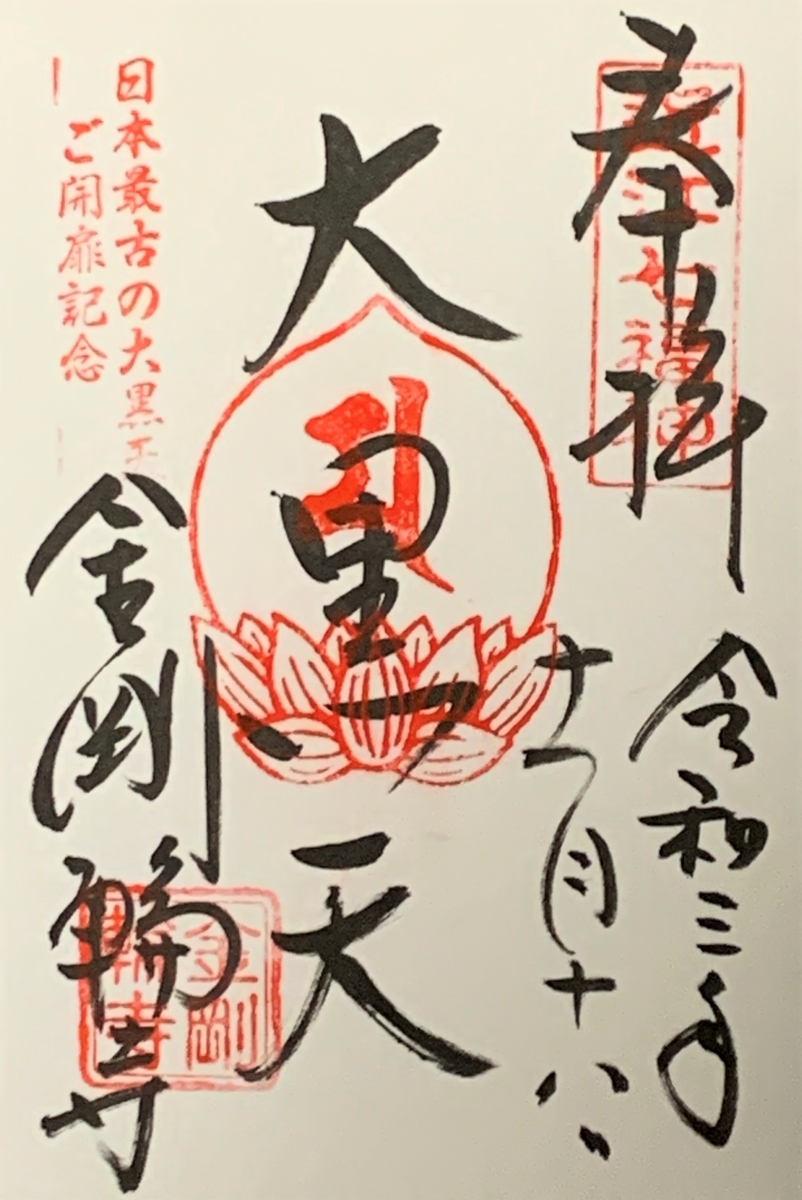 奉拝
近江七福神
令和三年
十一月十八日
大黒天
日本最古の大黒天
ご開扉記念
金剛輪寺
金剛
輪寺